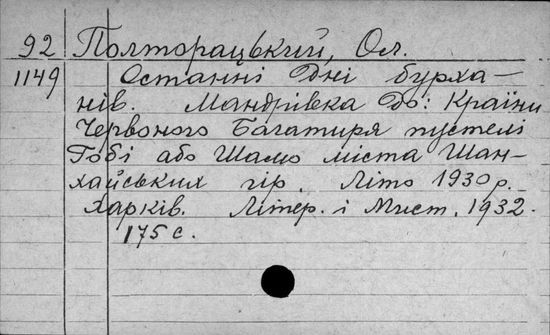 92 Полторацький, Ол.
1149 Останні Дні бурха-
нів. Мандрівка до: Країни
Червоного Багатиря пустелі
Гобі або Шамо міста Шан-
хайських гір. Літо 1930 р.
Харків. Літер. і Мист. 1932.
175 с.